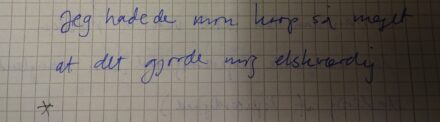 Jeg hadede min krop så meget
at det gjorde mig elskværdig
*